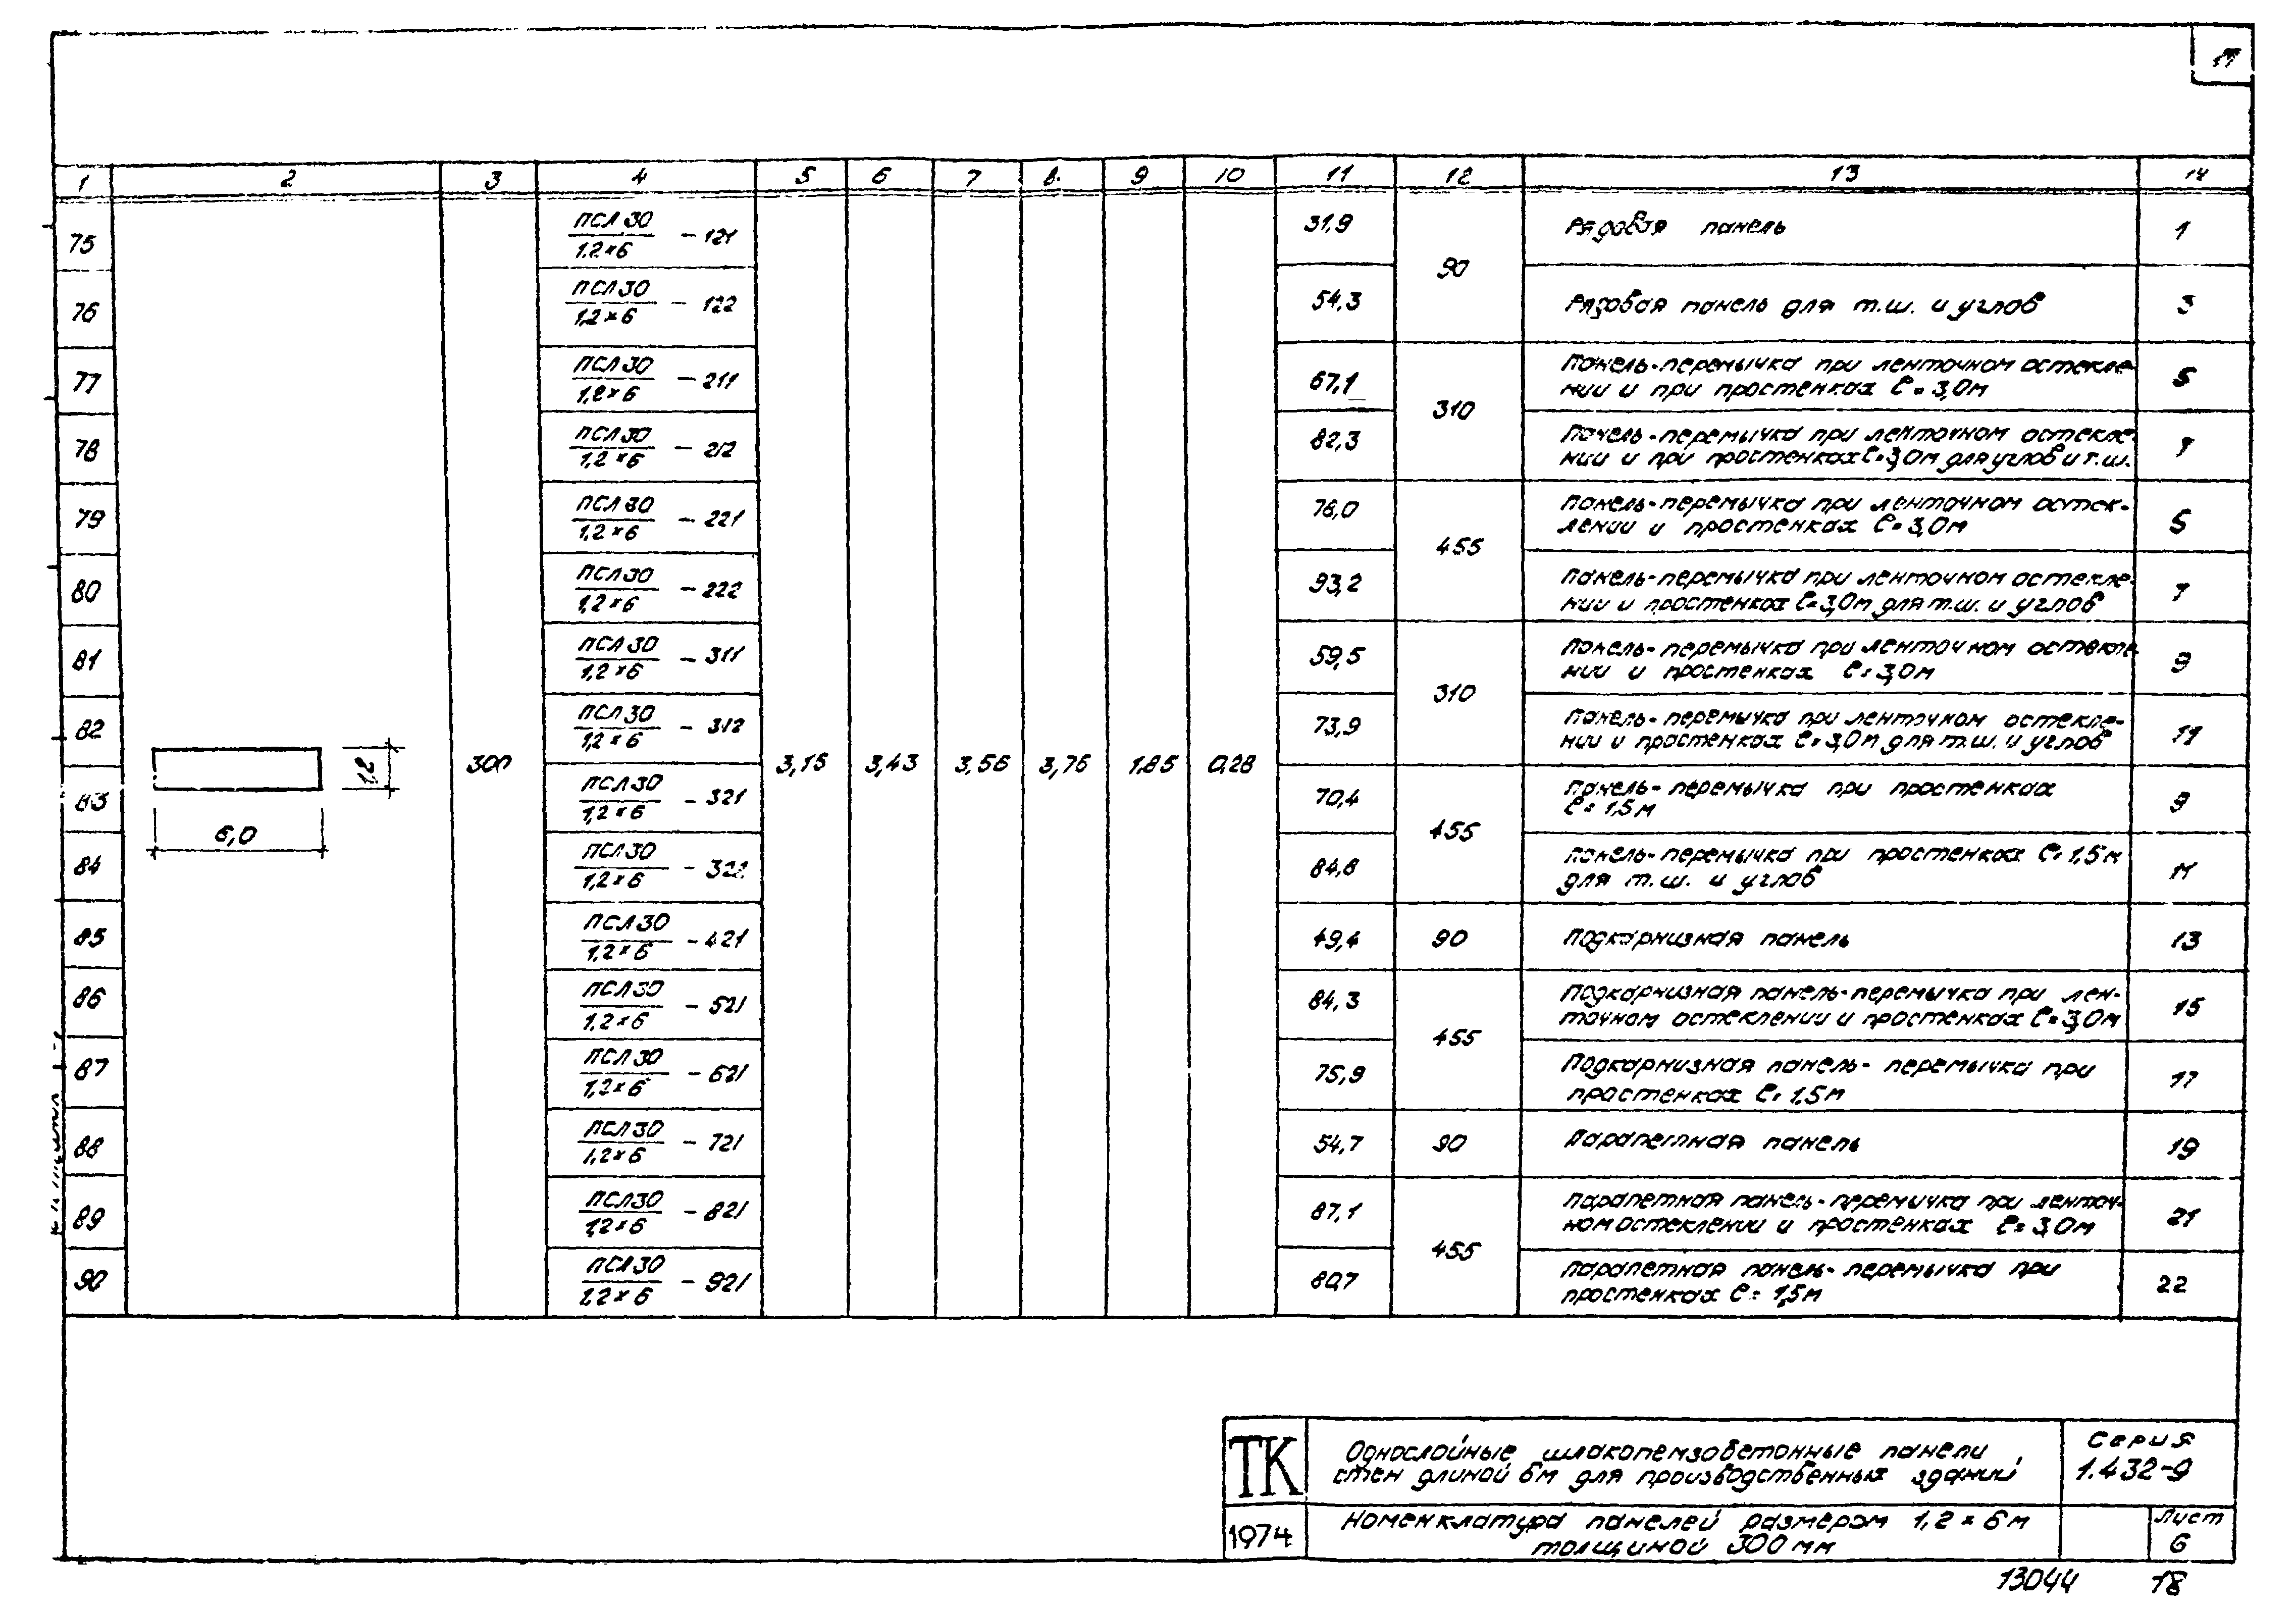 1 2 3 4 5 6 7 8. 9 10 11 12 13 14
75 ПСЛ 30 / 1.2×6 - 121 31,9 Рядовая панель 1
90
76 ПСЛ 30 / 1,2×6 - 122 54,3 Рядовая панель для т.ш. и углов 3
77 ПСЛ 30 / 1,2×6 - 211 67,1 Панель-перемычка при ленточном остекле-
нии и при простенках ℓ=3,0м 5
310
78 ПСЛ 30 / 1,2×6 - 212 82,3 Панель-перемычка при ленточном остекле-
нии и при простенках ℓ=3,0м для углов и т.ш. 7
79 ПСЛ 30 / 1,2×6 - 221 76,0 Панель-перемычка при ленточном остек-
лении и простенках ℓ=3,0м 5
455
80 ПСЛ 30 / 1,2×6 - 222 93,2 Панель-перемычка при ленточном остекле-
нии и простенках ℓ=3,0м для т.ш. и углов 7
81 ПСЛ 30 / 1,2×6 - 311 59,5 Панель-перемычка при ленточном остекле-
нии и простенках ℓ=3,0м 9
310
82 ПСЛ 30 / 1,2×6 - 312 73,9 Панель-перемычка при ленточном остекле-
нии и простенках ℓ=3,0м для т.ш. и углов 11
1,2
6,0
300 3,15 3,43 3,56 3,76 1.85 0,28
83 ПСЛ 30 / 1,2×6 - 321 70,4 Панель-перемычка при простенках
ℓ=1,5м 9
455
84 ПСЛ 30 / 1,2×6 - 322 84,8 Панель-перемычка при простенках ℓ=1,5м
для т.ш. и углов 11
85 ПСЛ 30 / 1,2×6 - 421 49,4 90 Подкарнизная панель 13
86 ПСЛ 30 / 1.2×6 - 521 84,3 Подкарнизная панель-перемычка при лен-
точном остеклении и простенках ℓ=3,0м 15
455
87 ПСЛ 30 / 1,2×6 - 621 75,9 Подкарнизная панель-перемычка при
простенках ℓ=1,5м 17
88 ПСЛ 30 / 1,2×6 - 721 54,7 90 Парапетная панель 19
89 ПСЛ 30 / 1,2×6 - 821 87,1 Парапетная панель-перемычка при ленточ-
ном остеклении и простенках ℓ=3,0м 21
455
90 ПСЛ 30 / 1.2×6 - 921 80,7 Парапетная панель-перемычка при
простенках ℓ=1,5м 22
ТК
Однослойные шлакопемзобетонные панели
стен длиной 6м для производственных зданий
Серия
1.432-9
1974
Номенклатура панелей размером 1,2×6м
толщиной 300мм
Лист
6
13044 18